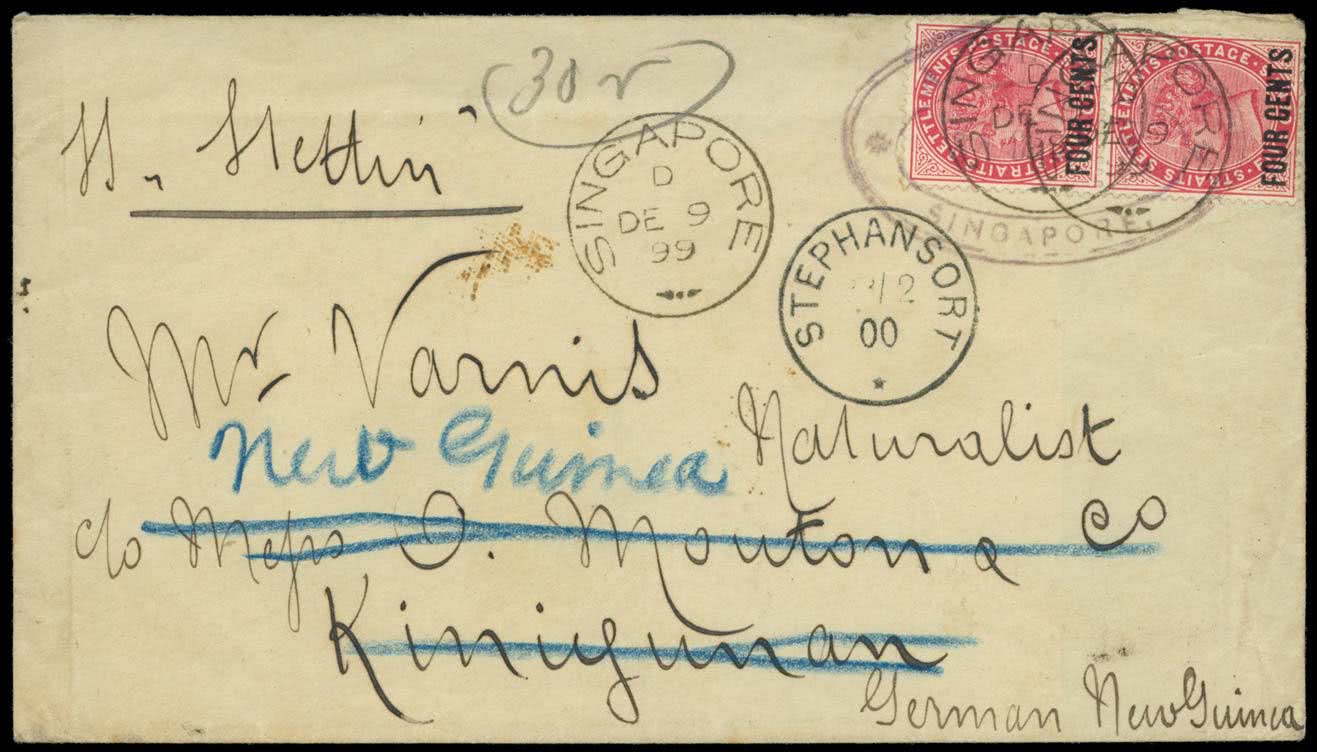 (30 r)
STRAITS SETTLEMENTS POSTAGE
FOUR CENTS
STRAITS SETTLEMENTS POSTAGE
FOUR CENTS
SINGAPORE
DE
SINGAPORE
DE 9
SINGAPORE
Stettin
SINGAPORE
D
DE 9
99
STEPHANSORT
/2
00
Mr. Varnis
Naturalist
New Guinea
c/o Messrs O. Mouton & Co
Kinigunan
German New Guinea